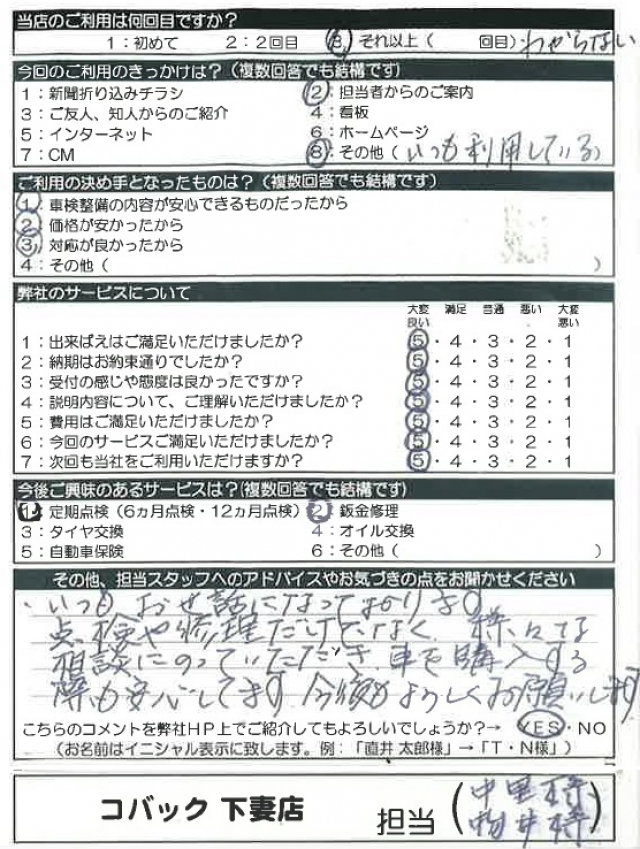 当店のご利用は何回目ですか？
1：初めて 2：2回目 3：それ以上（ 回目）わからない
今回のご利用のきっかけは？（複数回答でも結構です）
1：新聞折り込みチラシ 2：担当者からのご案内
3：ご友人、知人からのご紹介 4：看板
5：インターネット 6：ホームページ
7：CM 8：その他（いつも利用している）
ご利用の決め手となったものは？（複数回答でも結構です）
1：車検整備の内容が安心できるものだったから
2：価格が安かったから
3：対応が良かったから
4：その他（ ）
弊社のサービスについて
大変良い 満足 普通 悪い 大変悪い
1：出来ばえはご満足いただけましたか？ 5・4・3・2・1
2：納期はお約束通りでしたか？ 5・4・3・2・1
3：受付の感じや態度は良かったですか？ 5・4・3・2・1
4：説明内容について、ご理解いただけましたか？ 5・4・3・2・1
5：費用はご満足いただけましたか？ 5・4・3・2・1
6：今回のサービスご満足いただけましたか？ 5・4・3・2・1
7：次回も当社をご利用いただけますか？ 5・4・3・2・1
今後ご興味のあるサービスは？(複数回答でも結構です)
1：定期点検（6ヵ月点検・12ヵ月点検） 2：鈑金修理
3：タイヤ交換 4：オイル交換
5：自動車保険 6：その他（ ）
その他、担当スタッフへのアドバイスやお気づきの点をお聞かせください
・いつも お世話になっております。
点検や修理だけでなく、様々な
相談にのっていただき、車を購入する
際も安心してます 今後もよろしくお願いします
こちらのコメントを弊社HP上でご紹介してもよろしいでしょうか？→ YES・NO
（お名前はイニシャル表示に致します。例：「直井 太郎様」→「T・N様」）
コバック 下妻店 担当（中里様
様）